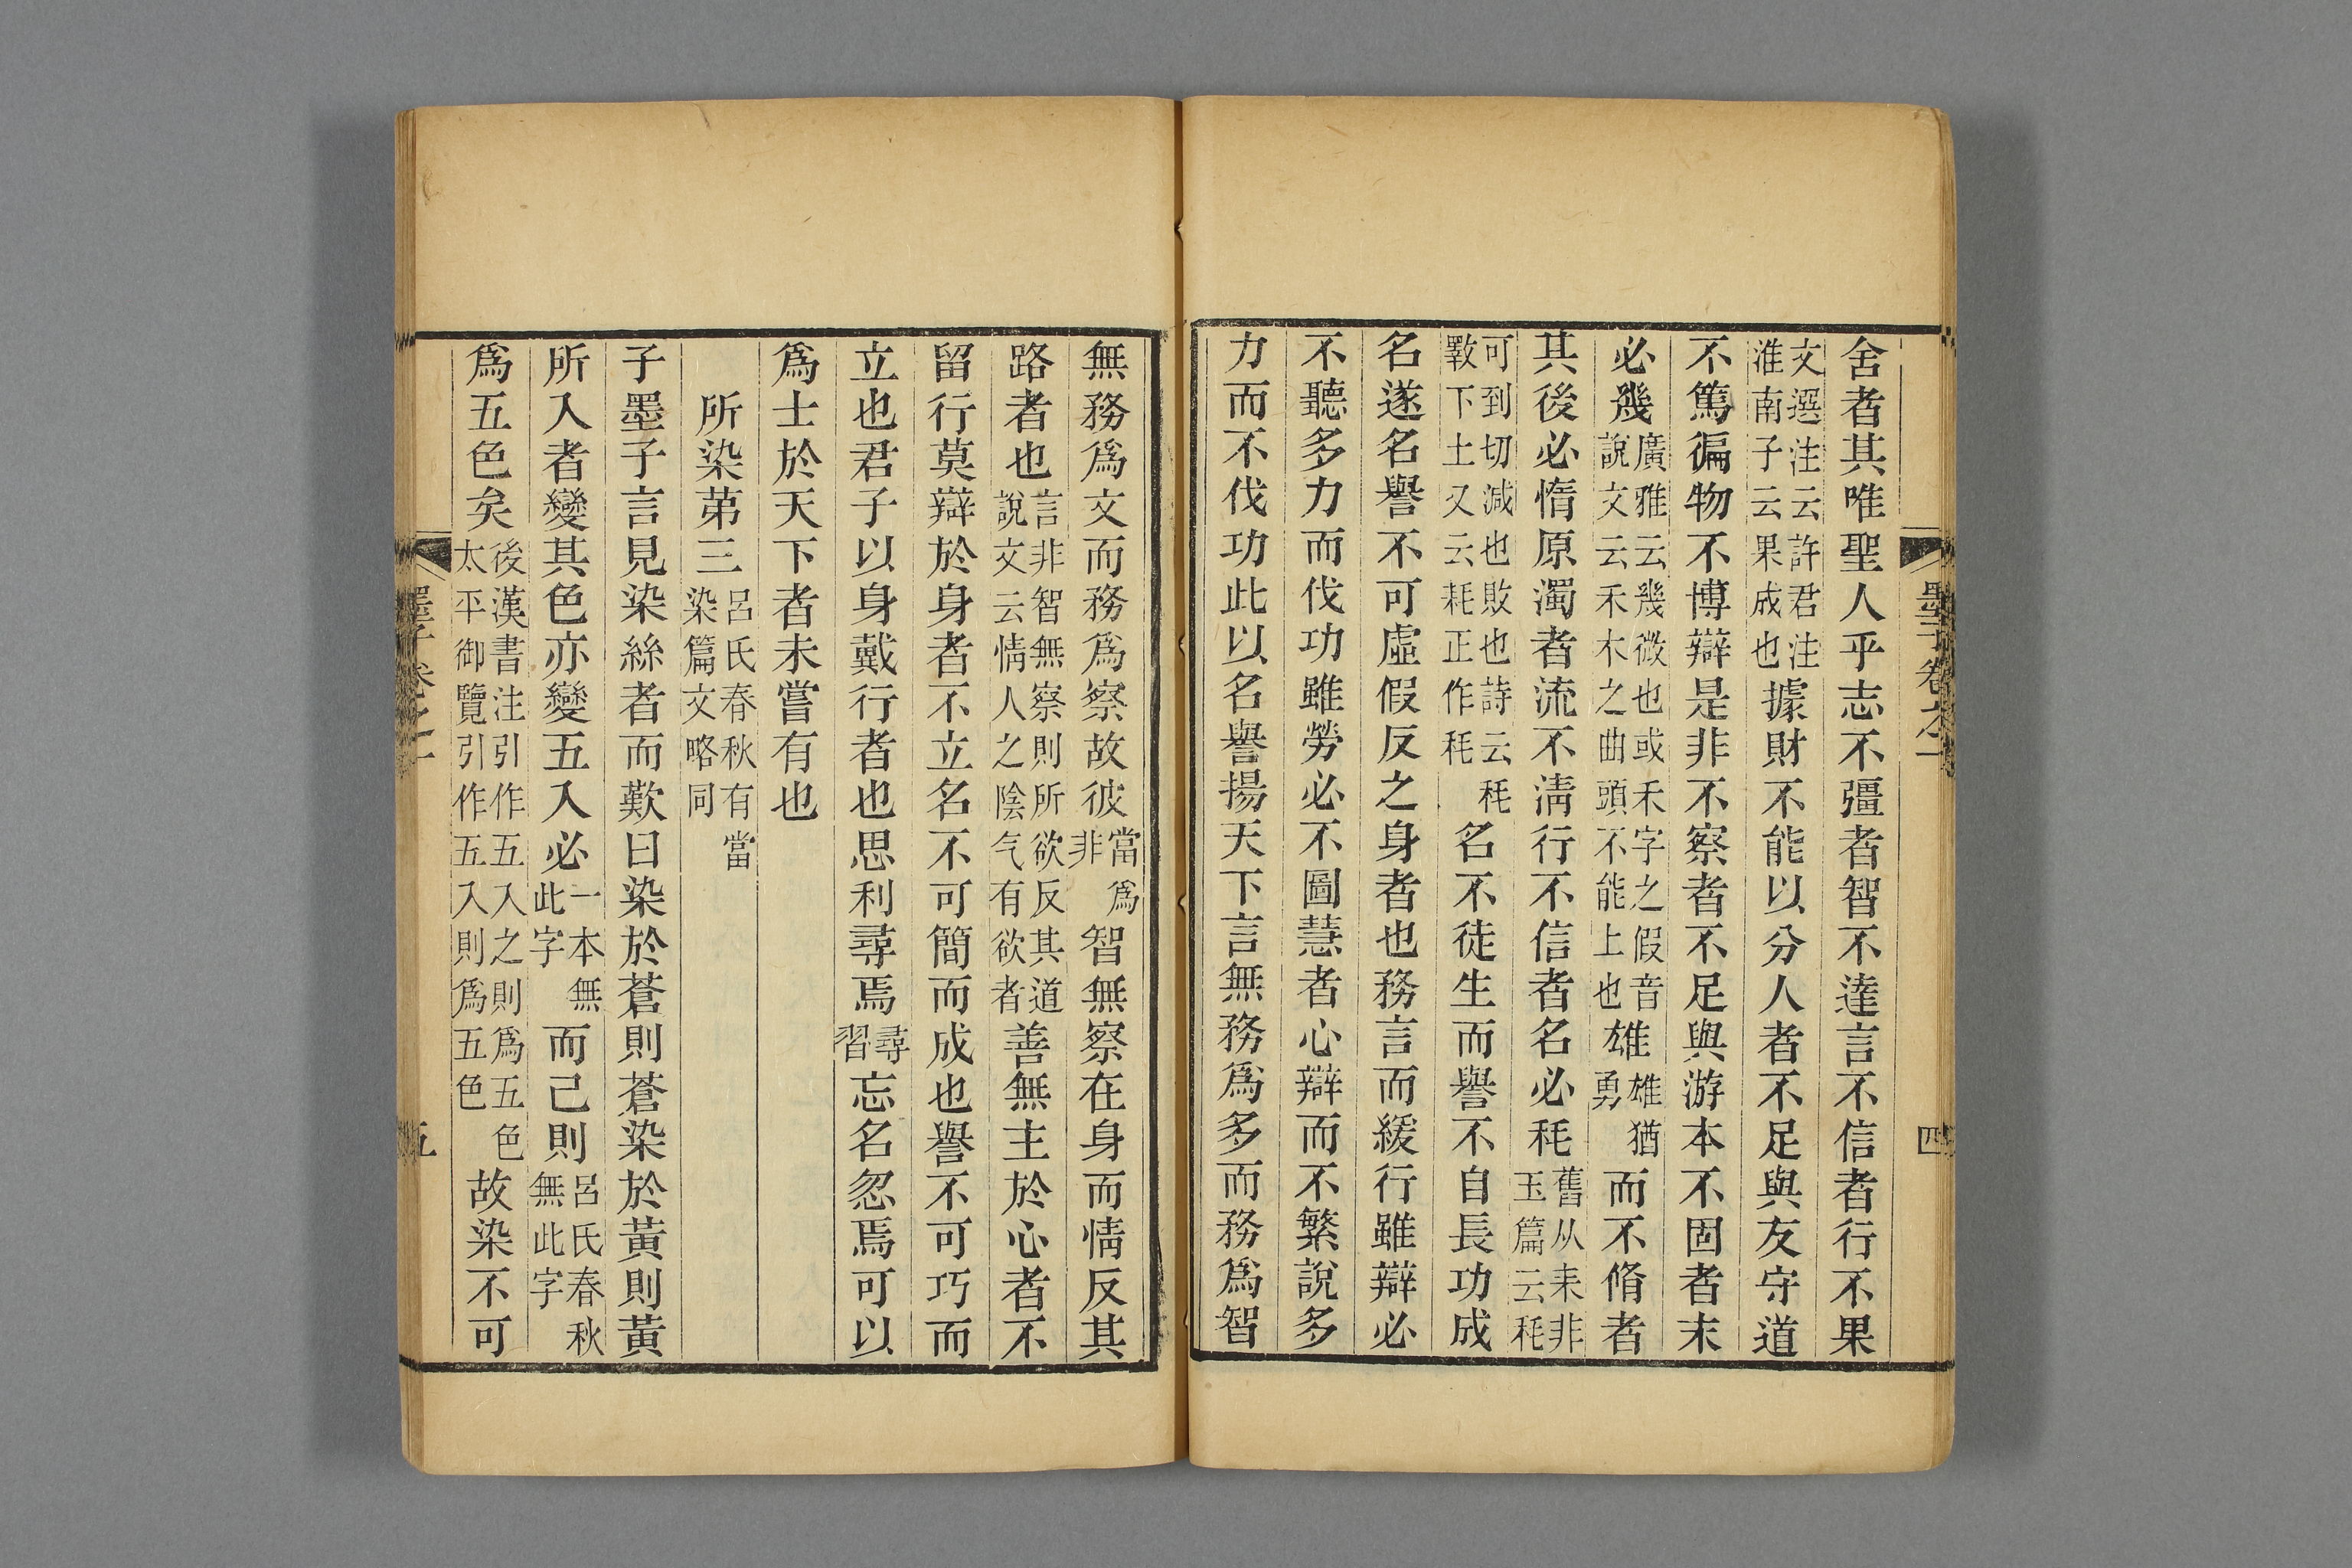 舍者其唯聖人乎志不彊者智不達言不信者行不果
文選注云許君注淮南子云果成也據財不能以分人者不足與友守道
不篤徧物不博辯是非不察者不足與游本不固者末
必幾廣雅云幾微也或禾字之假音說文云禾木之曲頭不能上也雄雄猶勇而不脩者
其後必惰原濁者流不清行不信者名必秏舊从耒非玉篇云秏
可到切減也敗也詩云秏斁下土又云耗正作秏名不徒生而譽不自長功成
名遂名譽不可虛假反之身者也務言而緩行雖辯必
不聽多力而伐功雖勞必不圖慧者心辯而不繁說多
力而不伐功此以名譽揚天下言無務爲多而務爲智
無務爲文而務爲察故彼當爲非智無察在身而情反其
路者也言非智無察則所欲反其道說文云情人之陰气有欲者善無主於心者不
留行莫辯於身者不立名不可簡而成也譽不可巧而
立也君子以身戴行者也思利尋焉尋習忘名忽焉可以
爲士於天下者未嘗有也
所染苐三呂氏春秋有當染篇文略同
子墨子言見染絲者而歎曰染於蒼則蒼染於黃則黃
所入者變其色亦變五入必一本無此字而己則呂氏春秋無此字
爲五色矣後漢書注引作五入之則爲五色太平御覽引作五入則爲五色故染不可
墨子卷之一
四
墨子卷之一
五